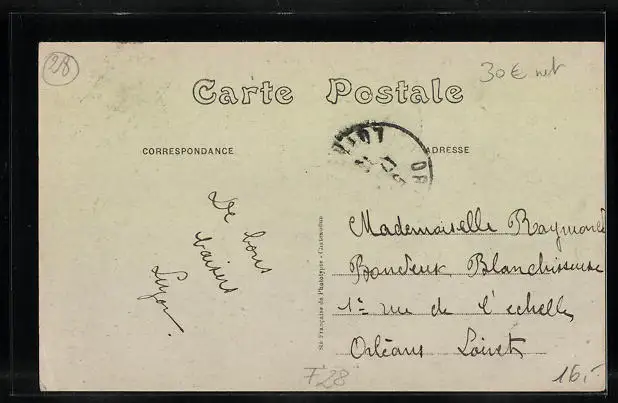 28
30€ net
Carte Postale
CORRESPONDANCE
ADRESSE
LOIR
OR
De bons
baisers
Mademoiselle Raymonde
Blanchisseuse
1 rue de l'echelle
Orléans Loiret
Sté Française de Phototypie - Courbevoie
F28
16,-